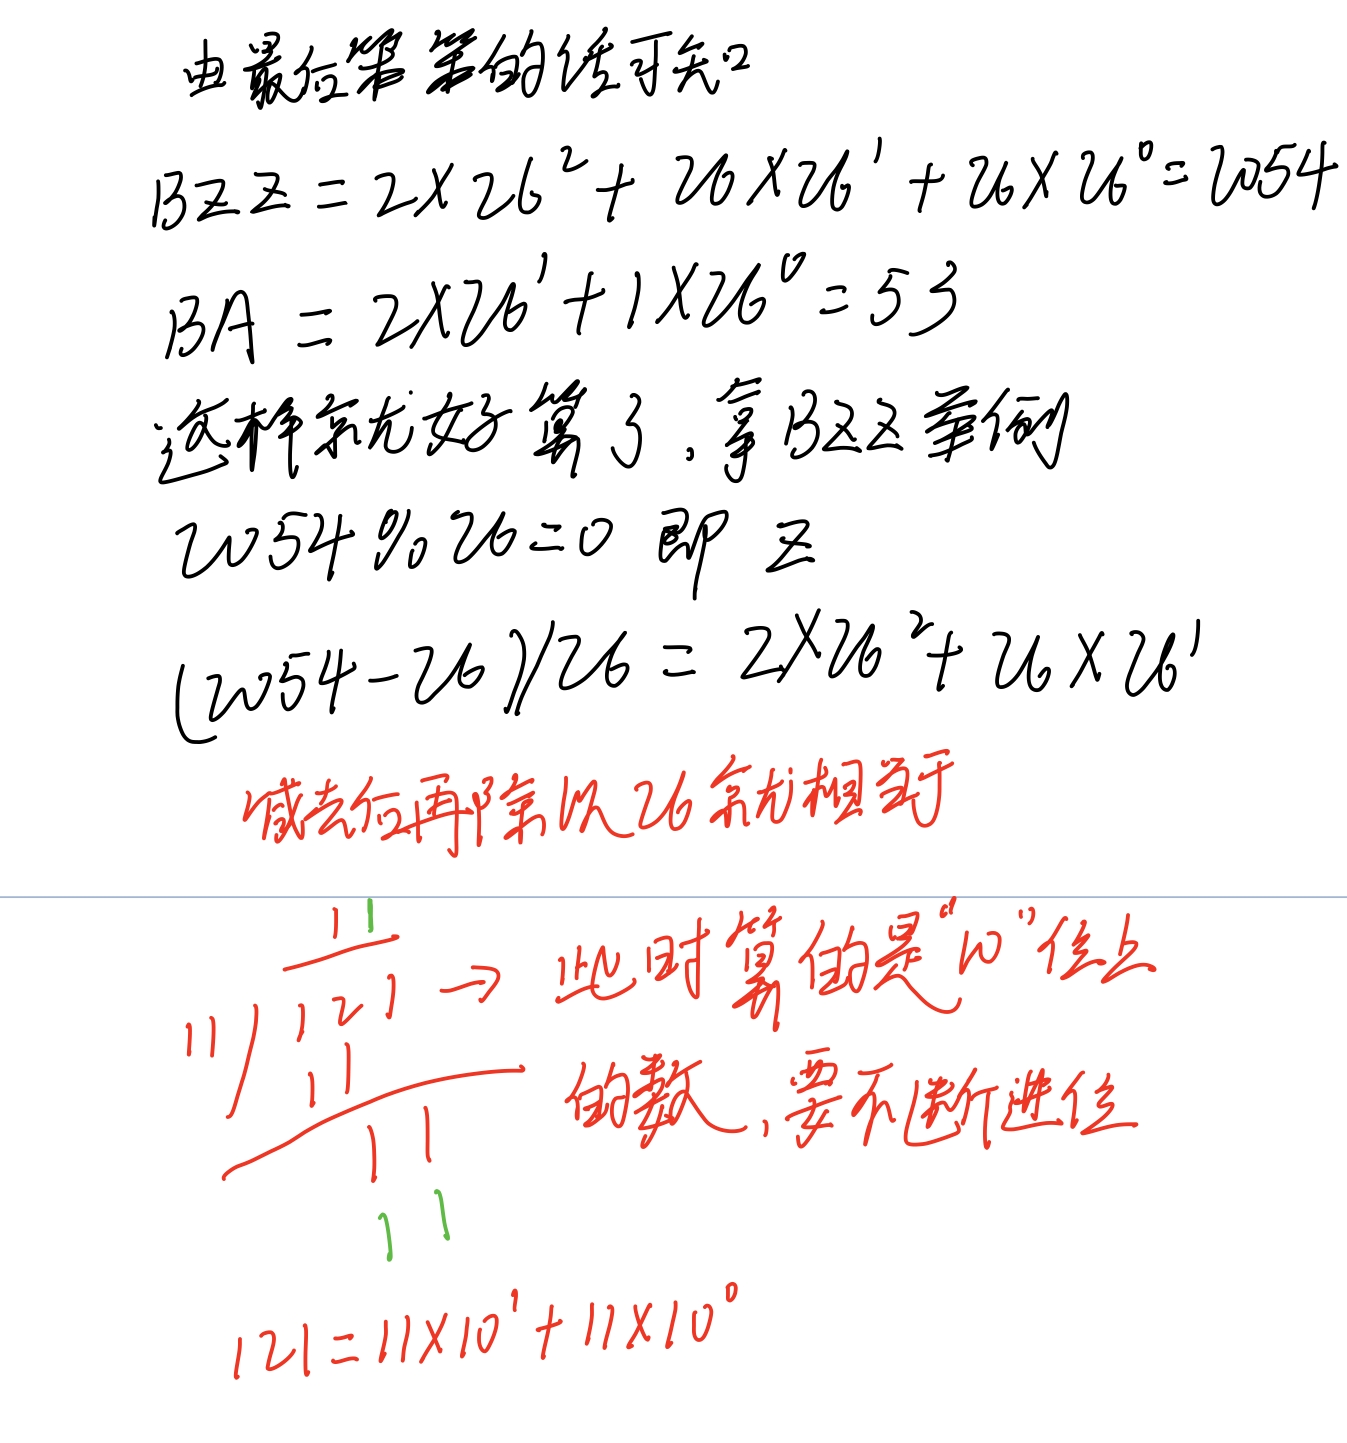 由最后算算的话可知
BZZ = 2×26² + 26×26¹ + 26×26⁰ = 2054
BA = 2×26¹ + 1×26⁰ = 53
这样就好算了，拿BZZ举例
2054 % 26 = 0 即 Z
(2054 - 26)/26 = 2×26² + 26×26¹
减去后再除以26就相当于
11
11)121 → 此时算的是“10”位上
11
的数，要不断进位
11
11
121 = 11×10¹ + 11×10⁰